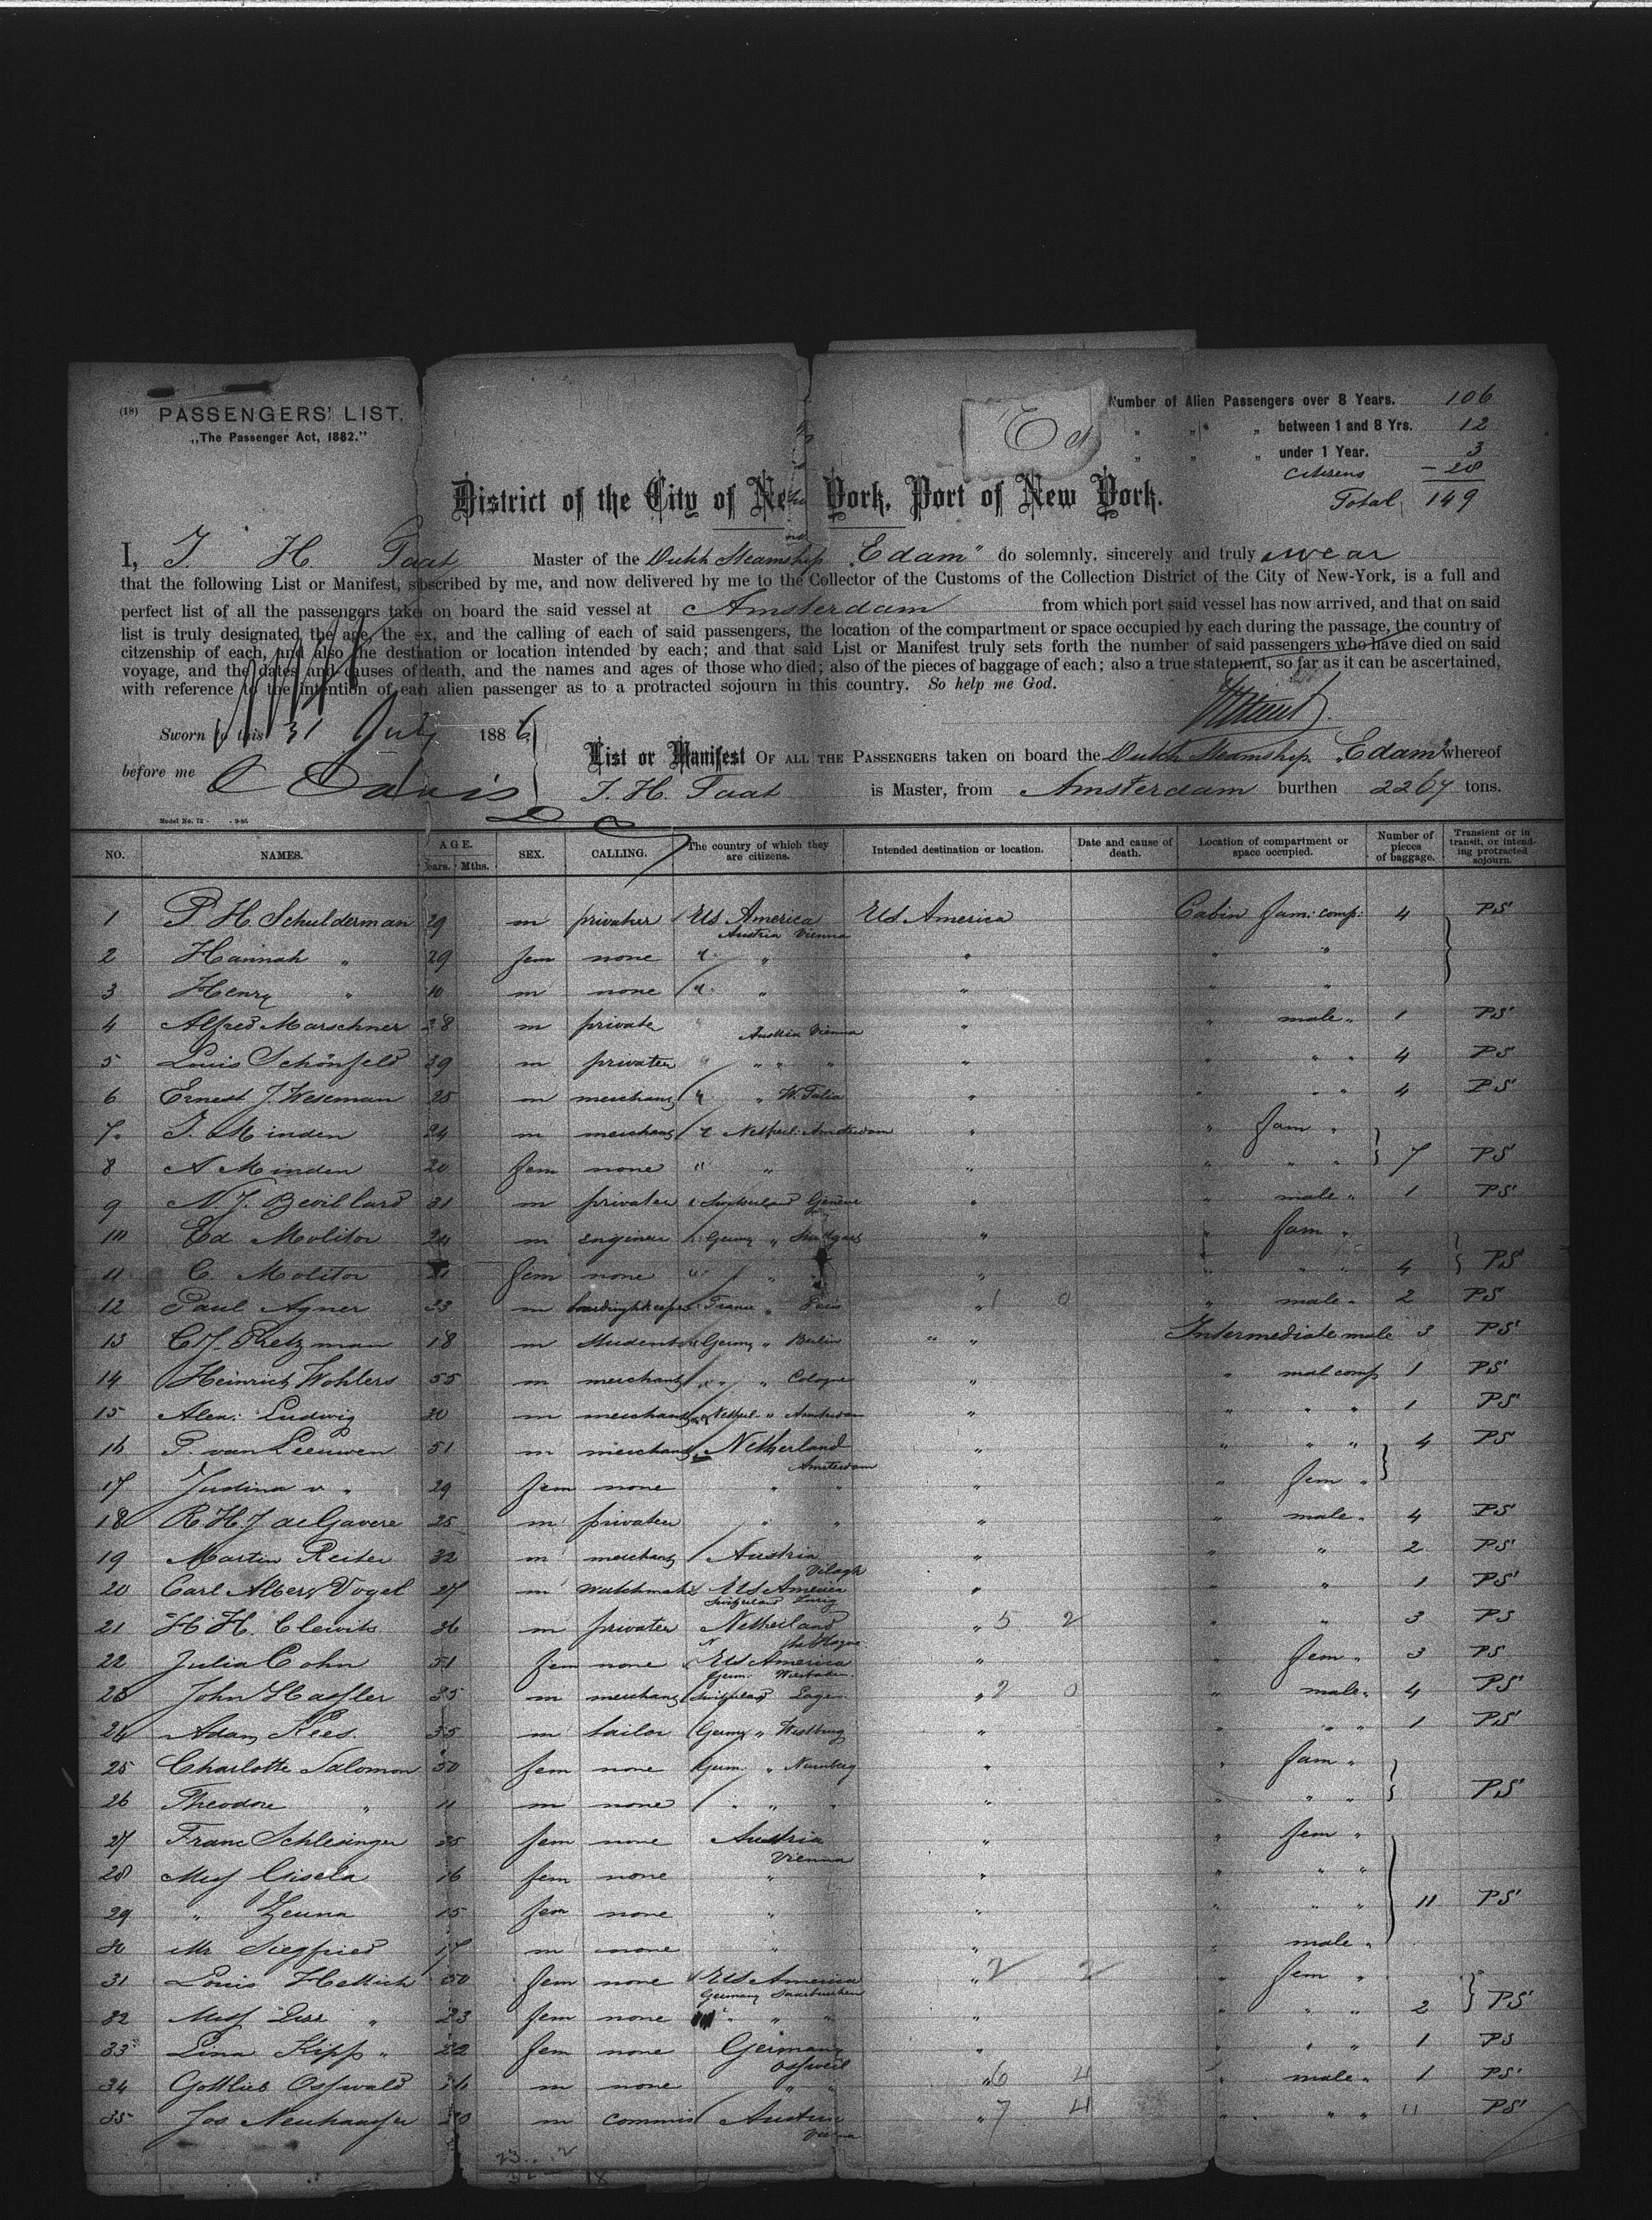 (18) PASSENGERS' LIST.
„The Passenger Act, 1882."
Ed
Number of Alien Passengers over 8 Years. 106
„ „ „ between 1 and 8 Yrs. 12
„ „ „ under 1 Year. 3
Citizens - 28
Total 149
District of the City of New York, Port of New York.
I, J. H. Taat Master of the Dutch Steamship „Edam" do solemnly, sincerely and truly swear
that the following List or Manifest, subscribed by me, and now delivered by me to the Collector of the Customs of the Collection District of the City of New-York, is a full and
perfect list of all the passengers take on board the said vessel at Amsterdam from which port said vessel has now arrived, and that on said
list is truly designated the age, the sex, and the calling of each of said passengers, the location of the compartment or space occupied by each during the passage, the country of
citzenship of each, and also the destination or location intended by each; and that said List or Manifest truly sets forth the number of said passengers who have died on said
voyage, and the dates and causes of death, and the names and ages of those who died; also of the pieces of baggage of each; also a true statement, so far as it can be ascertained,
with reference to the intention of each alien passenger as to a protracted sojourn in this country. So help me God.
Sworn to this 31 July 1886
before me
List or Manifest OF ALL THE PASSENGERS taken on board the Dutch Steamship „Edam" whereof
J. H. Taat is Master, from Amsterdam burthen 2267 tons.
NO. NAMES. AGE. Years. Mths. SEX. CALLING. The country of which they are citizens. Intended destination or location. Date and cause of death. Location of compartment or space occupied. Number of pieces of baggage. Transient or in transit, or intending protracted sojourn.
1 P. H. Schulderman 29 m privatier US America Austria Vienna US America Cabin fam: comp: 4 PS
2 Hannah „ 29 fem none „ „ „ „ „
3 Henry „ 10 m none „ „ „ „ „
4 Alfred Marschner 38 m private „ Austria Vienna „ „ male „ 1 PS
5 Louis Schönfeld 39 m privatier „ „ „ „ „ „ „ „ 4 PS
6 Ernest J. Weseman 25 m merchant „ „ „ „ „ „ 4 PS
7 J. Minden 24 m merchant „ Netherl: Amsterdam „ „ fam „
8 A Minden 20 fem none „ „ „ „ „ „ 7 PS
9 N. J. 31 m privatier Switzerland Genève „ „ male „ 1 PS
10 Ed Molitor 24 m engineer Germ „ Stuttgart „ „ fam „
11 C. Molitor 21 fem none „ „ „ „ „ „ 4 PS
12 Paul Agner 33 m France „ Paris „ 1 0 „ male „ 2 PS
13 C J. Pretzman 18 m Student Germ „ Berlin „ „ Intermediate male 3 PS
14 Heinrich Wohlers 55 m merchant „ „ Cologne „ „ mal comp 1 PS
15 Alex: Ludwig 20 m merchant Netherl „ Amsterdam „ „ „ „ 1 PS
16 P. van Leeuwen 51 m merchant Netherland Amsterdam „ „ „ „ 4 PS
17 Justina v „ 29 fem none „ „ „ „ fem „
18 R. H. J de Gavere 25 m privatier „ „ „ „ male „ 4 PS
19 Martin Reiter 32 m merchant Austria „ „ „ 2 PS
20 Carl Albert Vogel 27 m watchmak US America Switzerland „ „ „ 1 PS
21 H. H. Clewits 36 m privatier Netherland the Hague „ 5 2 „ „ 3 PS
22 Julia Cohn 51 fem none US America Germ. Wiesbaden „ „ fem „ 3 PS
23 John Hassler 35 m merchant Switzerland „ 2 0 „ male „ 4 PS
24 Adam Kees 35 m tailor Germ „ „ „ „ „ 1 PS
25 Charlotte Salomon 50 fem none Germ „ Nurnberg „ „ fam „
26 Theodore „ 11 m none „ „ „ „ „ „ „ PS
27 Franc Schlesinger 35 fem none Austria Vienna „ „ fem „
28 Miss Gisela 16 fem none „ „ „ „ „
29 „ 15 fem none „ „ „ „ „ 11 PS
30 Mr Siegfried 17 m none „ „ „ male „
31 Louis Hettich 50 fem none US America Germany Saarbrucken „ 2 2 „ fem „
32 Miss „ 23 fem none „ „ „ „ „ „ „ 2 PS
33 Lina Kipp „ 22 fem none Germany Ossweil „ „ „ „ 1 PS
34 Gottlieb Osswald 16 m none „ „ „ 6 4 „ male „ 1 PS
35 Jos Neuhausser 20 m commis Austria Vienna „ 7 4 „ „ „ 11 PS